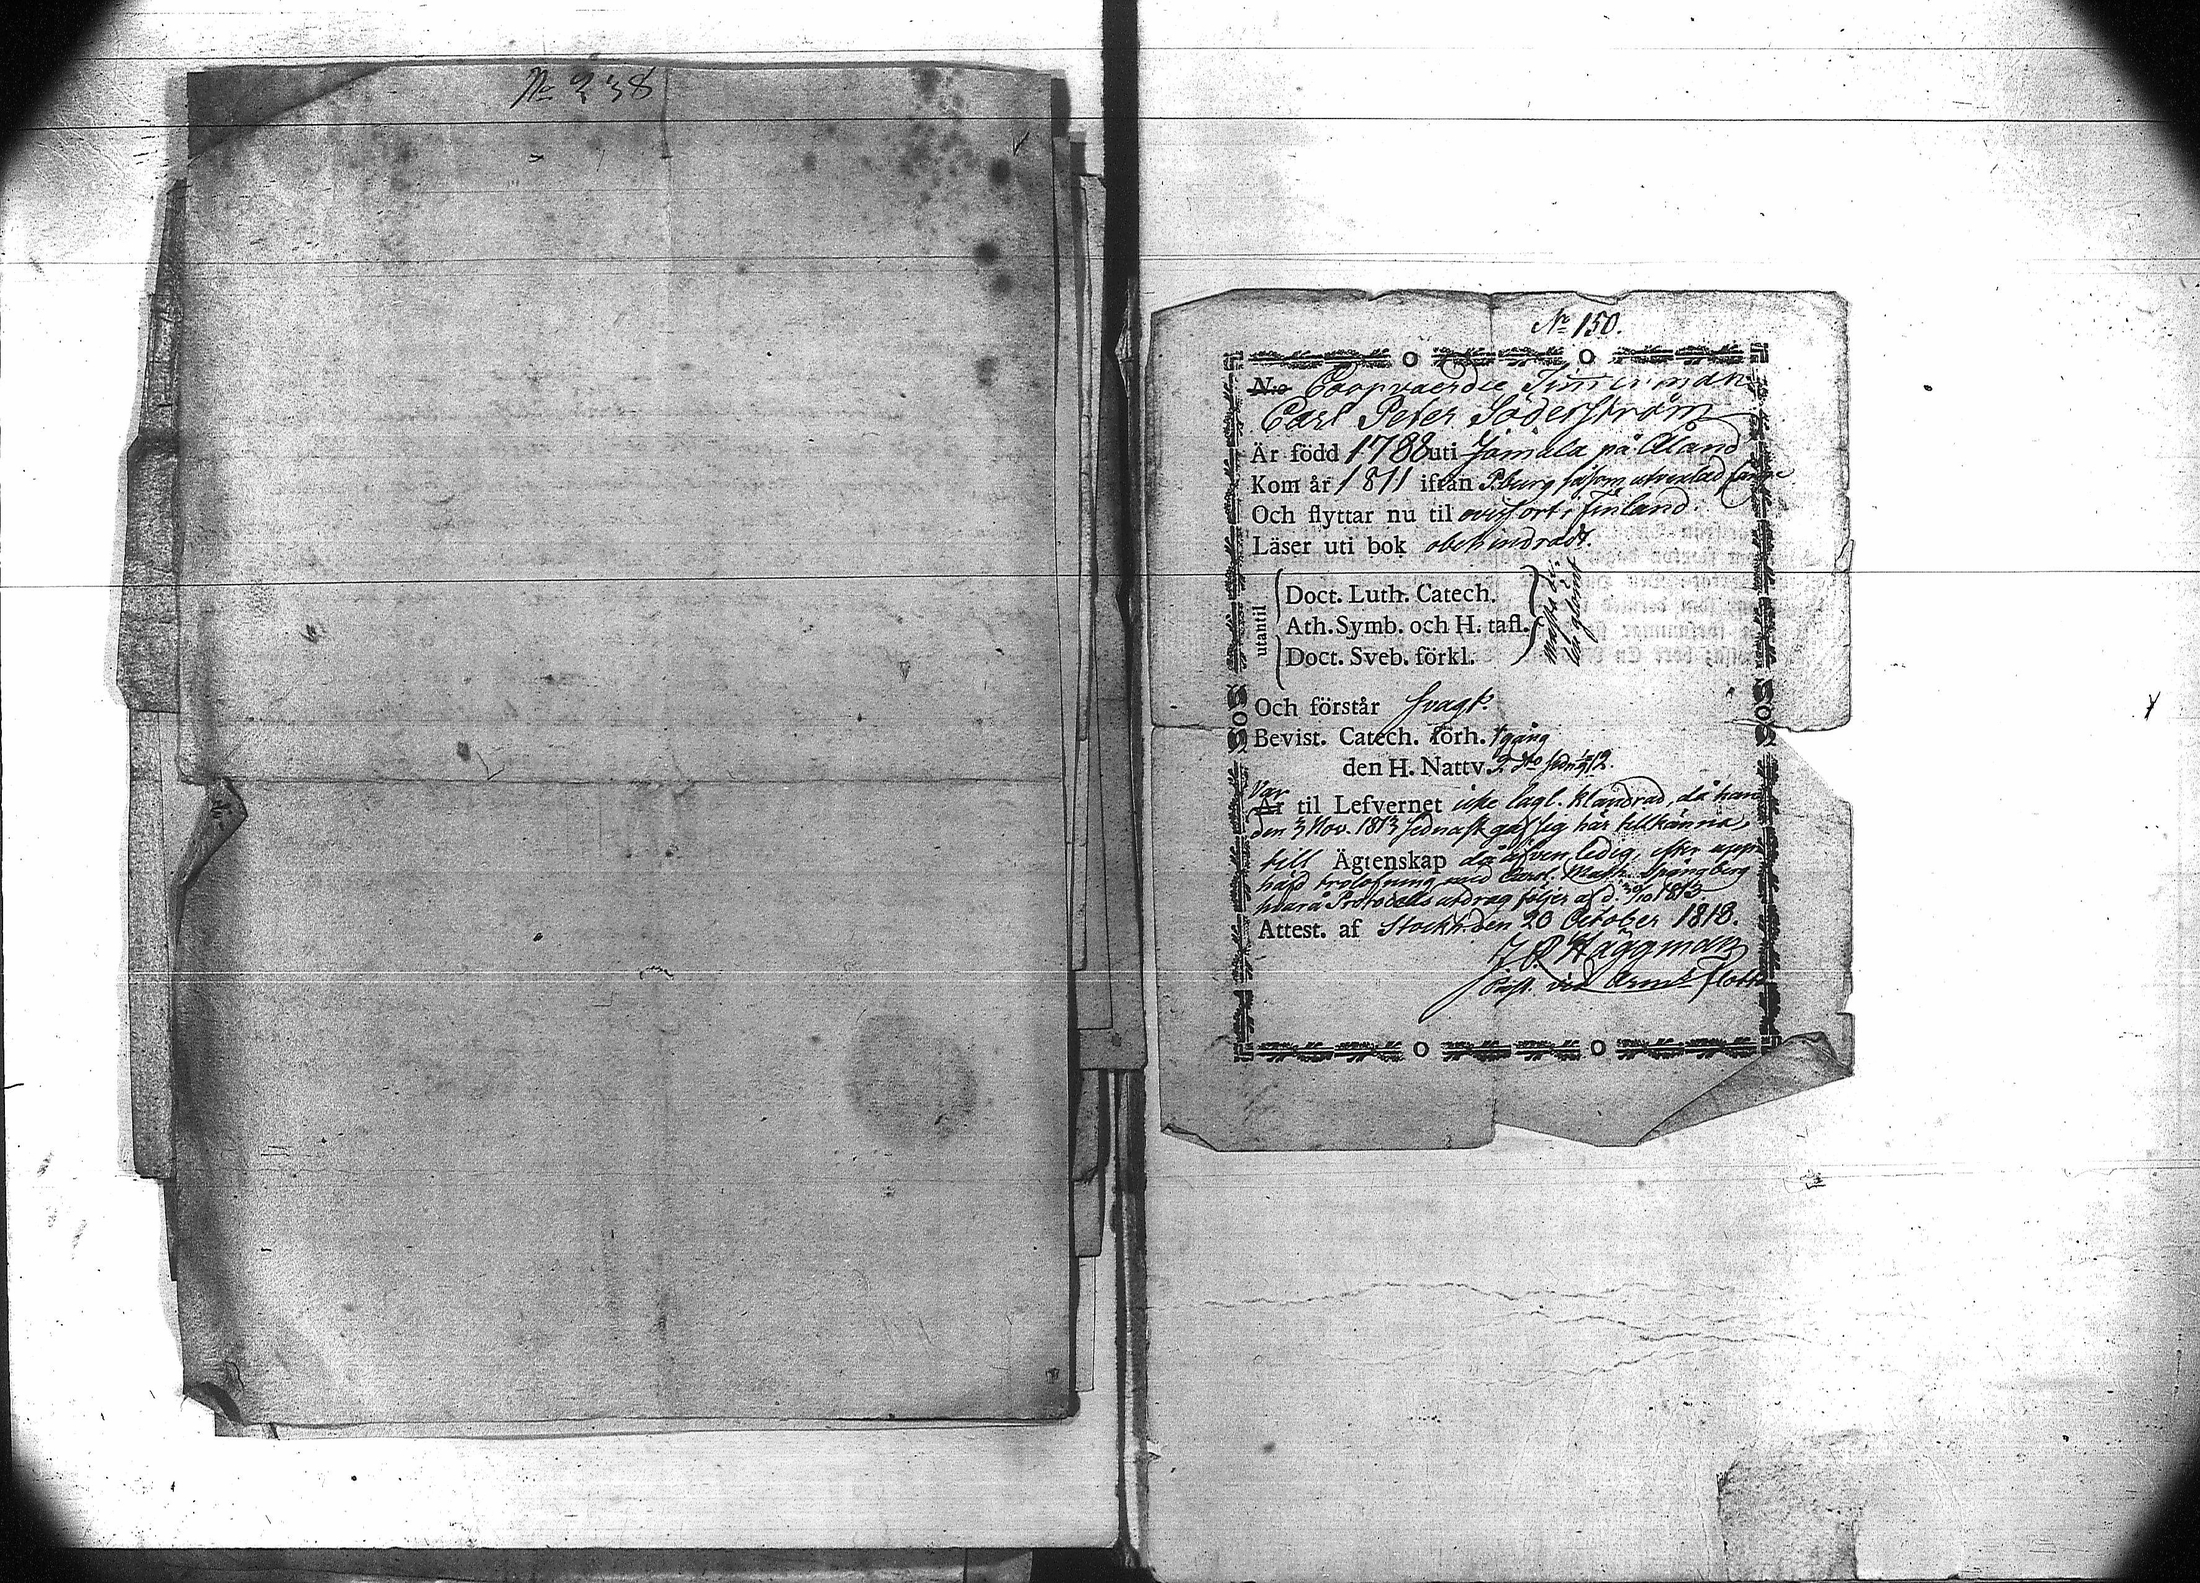 No 238
No 150.
N:o Coopvaerdie Timmerman
Carl Peter Söderström
Är född 1788 uti Jomala på Åland
Kom år 1811 ifrån P.burg såsom utvexlad fånge
Och flyttar nu til Finland.
Läser uti bok obehindradt.
utantil
Doct. Luth. Catech.
Ath. Symb. och H. tafl.
Doct. Sveb. förkl.
Och förstår svagt.
Bevist. Catech. förh. 1 gång
den H. Nattv. 2 do
Var
Är til Lefvernet icke lagl. klandrad, då han
den 3 Nov. 1813 sednast gaf sig här tillkänna,
till Ägtenskap då äfven ledig, efter upp-
häfd trolofning med Carol. Math. Spångberg
hvarå Protocolls utdrag följer af d. 30/10 1813
Attest. af Stockh. den 20 October 1818.
Häggman
Past. vid Arm. flotta